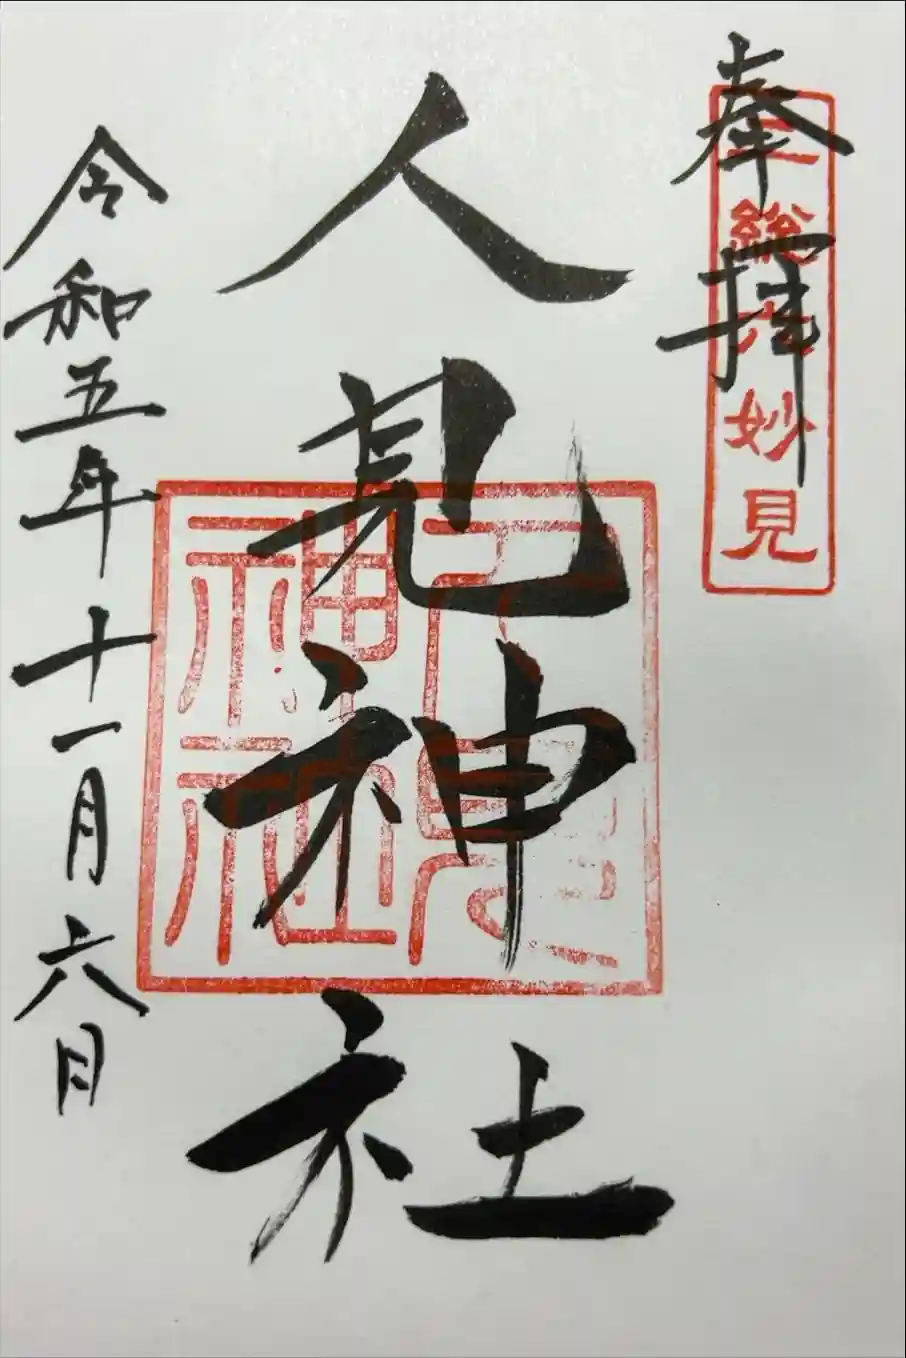 奉拝
二総六妙見
人見神社
令和五年十一月六日